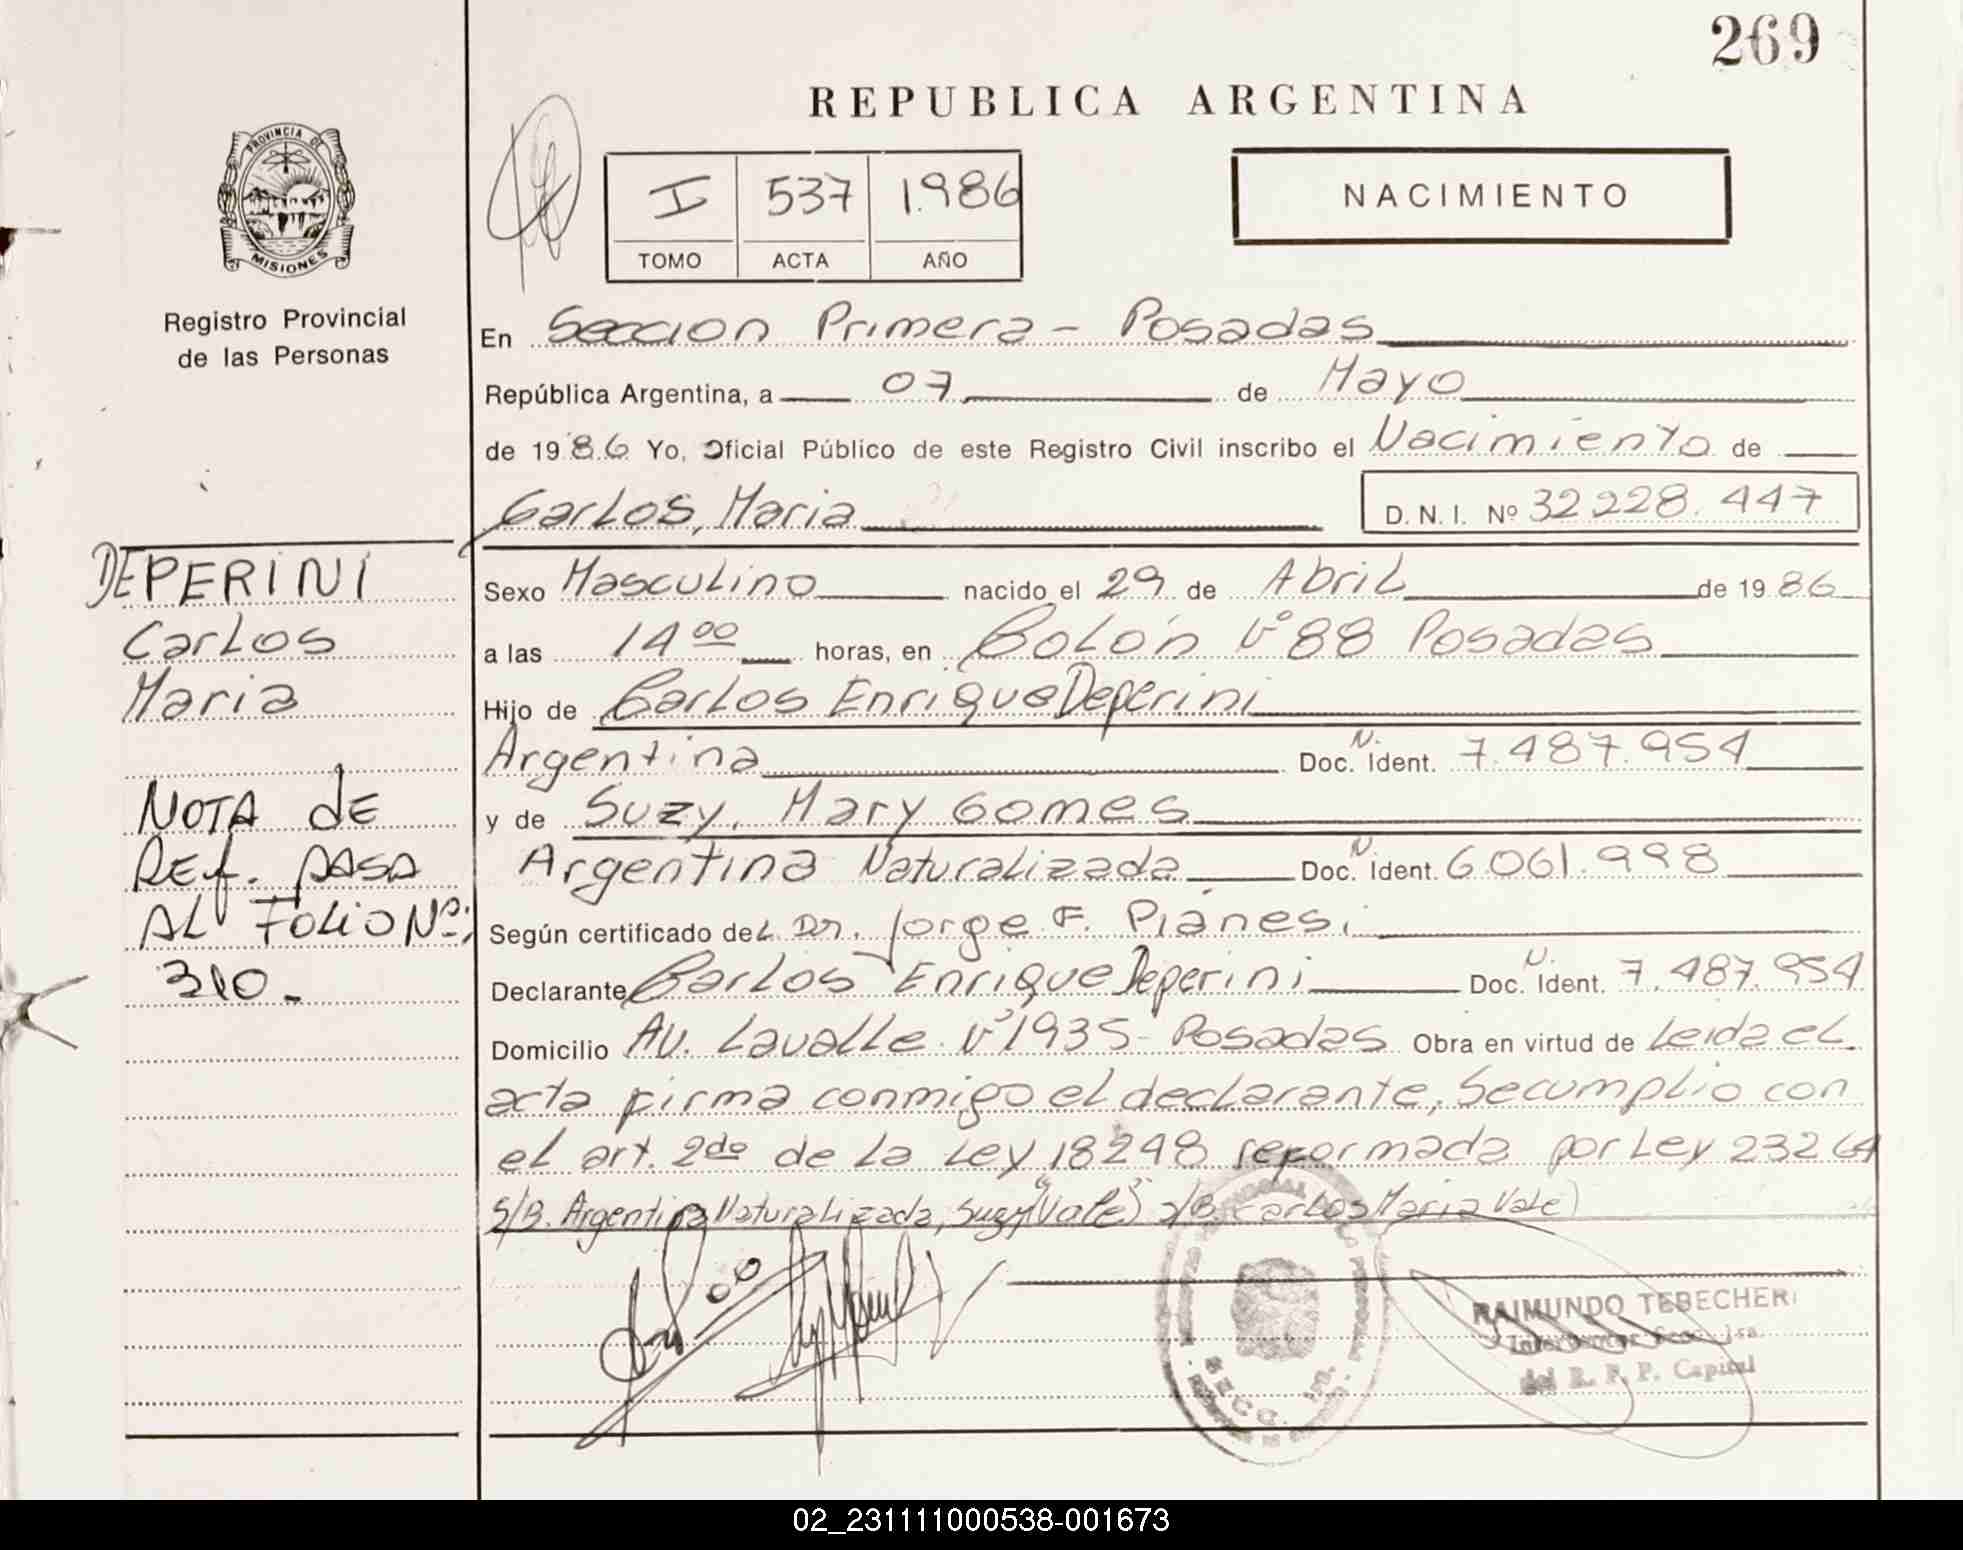 269
REPUBLICA ARGENTINA
PROVINCIA DE
MISIONES
Registro Provincial
de las Personas
I 537 1.986
TOMO ACTA AÑO
NACIMIENTO
En Seccion Primera - Posadas
República Argentina, a 07 de Mayo
de 1986 Yo, Oficial Público de este Registro Civil inscribo el Nacimiento de
Carlos, Maria
D. N. I. Nº 32228.447
DEPERINI
Carlos
Maria
NOTA dE
REf. pASA
AL FOLIO Nº:
310.-
Sexo Masculino nacido el 29 de Abril de 1986
a las 14 00 horas, en Bolón Nº 88 Posadas
Hijo de Carlos Enrique Deperini
Argentina Doc. N. Ident. 7.487.954
y de Suzy, Mary Gomes
Argentina Naturalizada Doc. N. Ident. 6.061.998
Según certificado del Dr. Jorge F. Pianesi
Declarante Carlos Enrique Deperini Doc. N. Ident. 7.487.954
Domicilio Av. Lavalle Nº 1935 - Posadas Obra en virtud de Leida el
acta firma conmigo el declarante, Se cumplio con
el art. 2do de la Ley 18248 reformada por Ley 23264
S/B. Argentina Naturalizada, Suzy "(Vale") s/B. Carlos Maria Vale)
RAIMUNDO TEBECHERI
Interventor Secc. 1ra.
del R. P. P. Capital
SECC. 1ra.
02_231111000538-001673